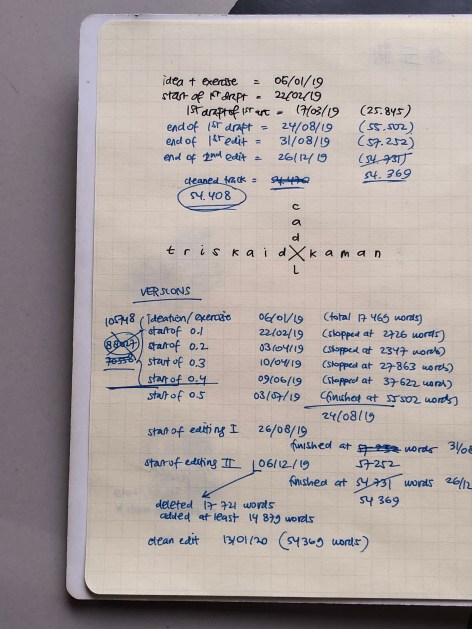 idea + exercise = 06/01/19
start of 1st draft = 22/02/19
1st draft of 1st arc = 17/03/19 (25.845)
end of 1st draft = 24/08/19 (55.502)
end of 1st edit = 31/08/19 (57.252)
end of 2nd edit = 26/12/19 (54.731)
54.369
cleaned track = 54.476
54.408
c
a
d
triskaidXkaman
L
VERSIONS
105748 Ideation/exercise 06/01/19 (total 17 469 words)
start of 0.1 22/02/19 (stopped at 2726 words)
start of 0.2 03/04/19 (stopped at 2347 words)
start of 0.3 10/04/19 (stopped at 27.863 words)
start of 0.4 09/06/19 (stopped at 37.622 words)
start of 0.5 03/07/19 (finished at 55502 words)
24/08/19
start of editing I 26/08/19
finished at words 31/08
57252
start of editing II 06/12/19
finished at 54731 words 26/12
54 369
deleted 17 721 words
added at least 14 879 words
clean edit 13/01/20 (54369 words)